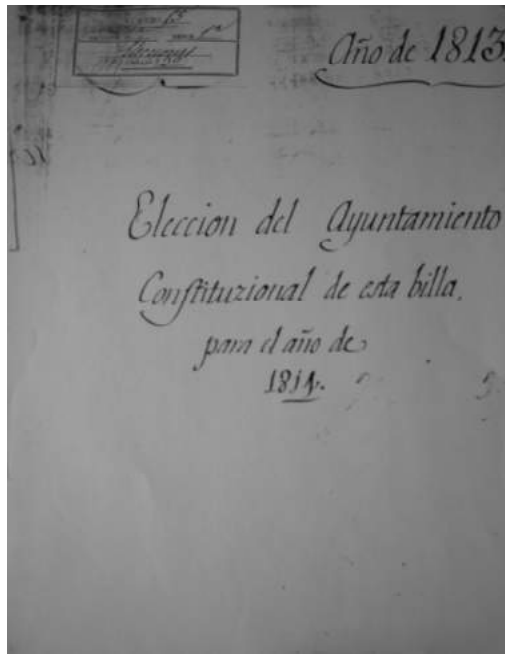 Año de 1813.
Eleccion del Ayuntamiento
Constituzional de esta billa,
para el año de
1814.